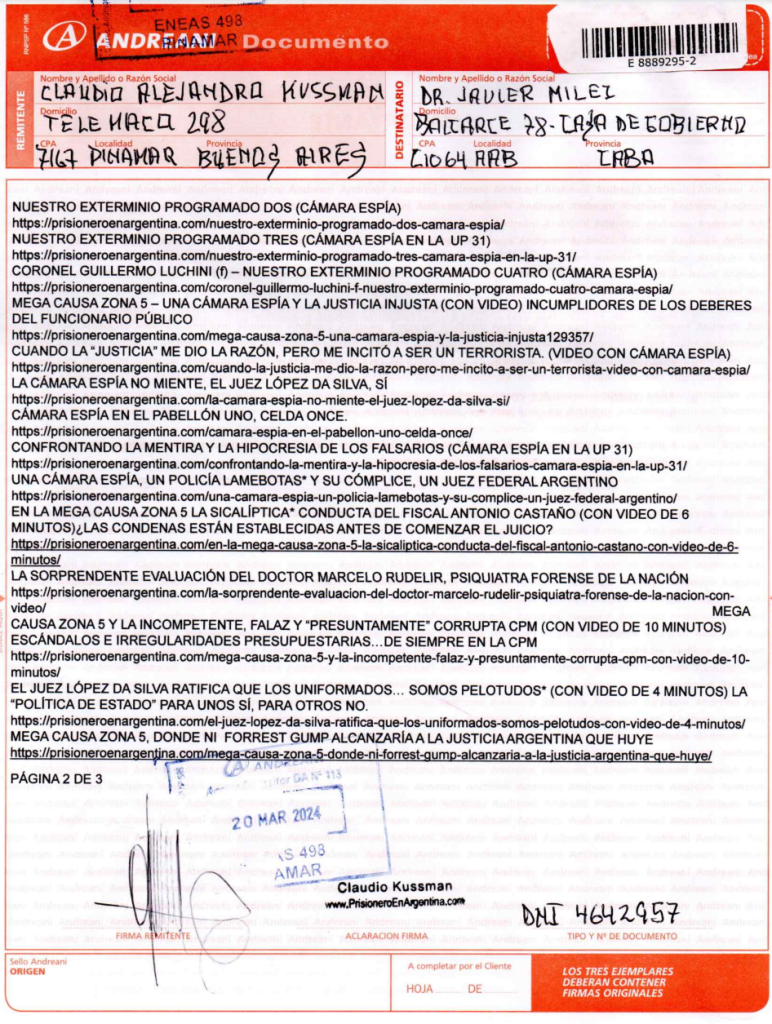 RNPSP Nº 586
ENEAS 498
PINAMAR
ANDREANI Documento
E 8889295-2
REMITENTE
Nombre y Apellido o Razón Social
CLAUDIO ALEJANDRO KUSSMAN
Domicilio
TELEMACO 298
CPA Localidad Provincia
7167 PINAMAR BUENOS AIRES
DESTINATARIO
Nombre y Apellido o Razón Social
DR. JAVIER MILEI
Domicilio
BALCARCE 78-CASA DE GOBIERNO
CPA Localidad Provincia
C1064 AAB CABA
NUESTRO EXTERMINIO PROGRAMADO DOS (CÁMARA ESPÍA)
https://prisioneroenargentina.com/nuestro-exterminio-programado-dos-camara-espia/
NUESTRO EXTERMINIO PROGRAMADO TRES (CÁMARA ESPÍA EN LA UP 31)
https://prisioneroenargentina.com/nuestro-exterminio-programado-tres-camara-espia-en-la-up-31/
CORONEL GUILLERMO LUCHINI (f) – NUESTRO EXTERMINIO PROGRAMADO CUATRO (CÁMARA ESPÍA)
https://prisioneroenargentina.com/coronel-guillermo-luchini-f-nuestro-exterminio-programado-cuatro-camara-espia/
MEGA CAUSA ZONA 5 – UNA CÁMARA ESPÍA Y LA JUSTICIA INJUSTA (CON VIDEO) INCUMPLIDORES DE LOS DEBERES
DEL FUNCIONARIO PÚBLICO
https://prisioneroenargentina.com/mega-causa-zona-5-una-camara-espia-y-la-justicia-injusta129357/
CUANDO LA "JUSTICIA" ME DIO LA RAZÓN, PERO ME INCITÓ A SER UN TERRORISTA. (VIDEO CON CÁMARA ESPÍA)
https://prisioneroenargentina.com/cuando-la-justicia-me-dio-la-razon-pero-me-incito-a-ser-un-terrorista-video-con-camara-espia/
LA CÁMARA ESPÍA NO MIENTE, EL JUEZ LÓPEZ DA SILVA, SÍ
https://prisioneroenargentina.com/la-camara-espia-no-miente-el-juez-lopez-da-silva-si/
CÁMARA ESPÍA EN EL PABELLÓN UNO, CELDA ONCE.
https://prisioneroenargentina.com/camara-espia-en-el-pabellon-uno-celda-once/
CONFRONTANDO LA MENTIRA Y LA HIPOCRESIA DE LOS FALSARIOS (CÁMARA ESPÍA EN LA UP 31)
https://prisioneroenargentina.com/confrontando-la-mentira-y-la-hipocresia-de-los-falsarios-camara-espia-en-la-up-31/
UNA CÁMARA ESPÍA, UN POLICÍA LAMEBOTAS* Y SU CÓMPLICE, UN JUEZ FEDERAL ARGENTINO
https://prisioneroenargentina.com/una-camara-espia-un-policia-lamebotas-y-su-complice-un-juez-federal-argentino/
EN LA MEGA CAUSA ZONA 5 LA SICALÍPTICA* CONDUCTA DEL FISCAL ANTONIO CASTAÑO (CON VIDEO DE 6
MINUTOS)¿LAS CONDENAS ESTÁN ESTABLECIDAS ANTES DE COMENZAR EL JUICIO?
https://prisioneroenargentina.com/en-la-mega-causa-zona-5-la-sicaliptica-conducta-del-fiscal-antonio-castano-con-video-de-6-
minutos/
LA SORPRENDENTE EVALUACIÓN DEL DOCTOR MARCELO RUDELIR, PSIQUIATRA FORENSE DE LA NACIÓN
https://prisioneroenargentina.com/la-sorprendente-evaluacion-del-doctor-marcelo-rudelir-psiquiatra-forense-de-la-nacion-con-
video/ MEGA
CAUSA ZONA 5 Y LA INCOMPETENTE, FALAZ Y "PRESUNTAMENTE" CORRUPTA CPM (CON VIDEO DE 10 MINUTOS)
ESCÁNDALOS E IRREGULARIDADES PRESUPUESTARIAS…DE SIEMPRE EN LA CPM
https://prisioneroenargentina.com/mega-causa-zona-5-y-la-incompetente-falaz-y-presuntamente-corrupta-cpm-con-video-de-10-
minutos/
EL JUEZ LÓPEZ DA SILVA RATIFICA QUE LOS UNIFORMADOS… SOMOS PELOTUDOS* (CON VIDEO DE 4 MINUTOS) LA
"POLÍTICA DE ESTADO" PARA UNOS SÍ, PARA OTROS NO.
https://prisioneroenargentina.com/el-juez-lopez-da-silva-ratifica-que-los-uniformados-somos-pelotudos-con-video-de-4-minutos/
MEGA CAUSA ZONA 5, DONDE NI FORREST GUMP ALCANZARÍA A LA JUSTICIA ARGENTINA QUE HUYE
https://prisioneroenargentina.com/mega-causa-zona-5-donde-ni-forrest-gump-alcanzaria-a-la-justicia-argentina-que-huye/
PÁGINA 2 DE 3
ANDREANI
20 MAR 2024
AS 498
AMAR
Claudio Kussman
www.PrisioneroEnArgentina.com
DNI 4642957
FIRMA REMITENTE ACLARACION FIRMA TIPO Y Nº DE DOCUMENTO
Sello Andreani
ORIGEN
A completar por el Cliente
HOJA DE
LOS TRES EJEMPLARES
DEBERAN CONTENER
FIRMAS ORIGINALES